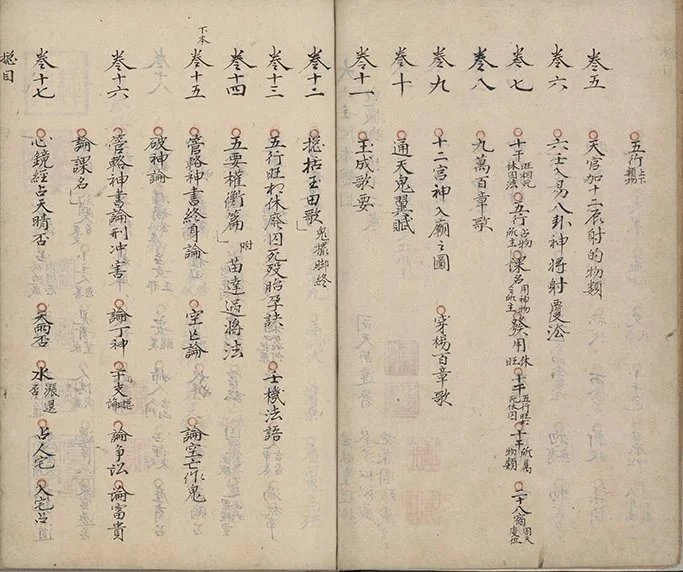 五行占物類
卷五 天官加十二辰射的物類
卷六 六壬入易八卦神將射覆法
卷七 十干旺相死休囚法 五行占物所主 課名用神物所主 發用休旺 十干五行旺死休囚 十干所屬物類 二十八宿周天度位
卷八 九萬百章歌
卷九 十二宮神入廟之圖 穿楊百章歌
卷十 通天鬼翼賦
卷十一 玉成歌要
卷十二 總括玉田歌 鬼撮脚終
卷十三 五行旺相休廢囚死歿胎孕訣 壬機法語
卷十四 五要權衡篇 附 苗達過將法
下本
卷十五 管輅神書終身論 空亡論 論空亡作鬼
破神論
卷十六 管輅神書論刑冲害 論丁神 干支總論 論爭訟 論富貴
論課名
卷十七 心鏡經占天晴否 天雨否 水漲退否 占人宅 入宅占道
總目